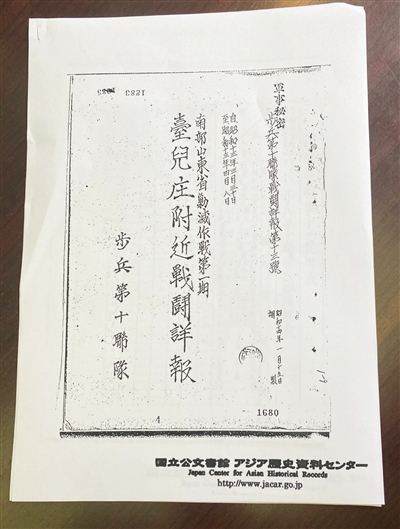 5851 5831
軍事秘密
歩兵第十聯隊戦闘詳報第十三號
自昭和十三年三月三十日
至昭和十三年四月八日
南部山東省勦滅作戦第一期
臺兒庄附近戦闘詳報
歩兵第十聯隊
昭和十四年一月十五日
調製
1680
国立公文書館 アジア歴史資料センター
Japan Center for Asian Historical Records
http://www.jacar.go.jp